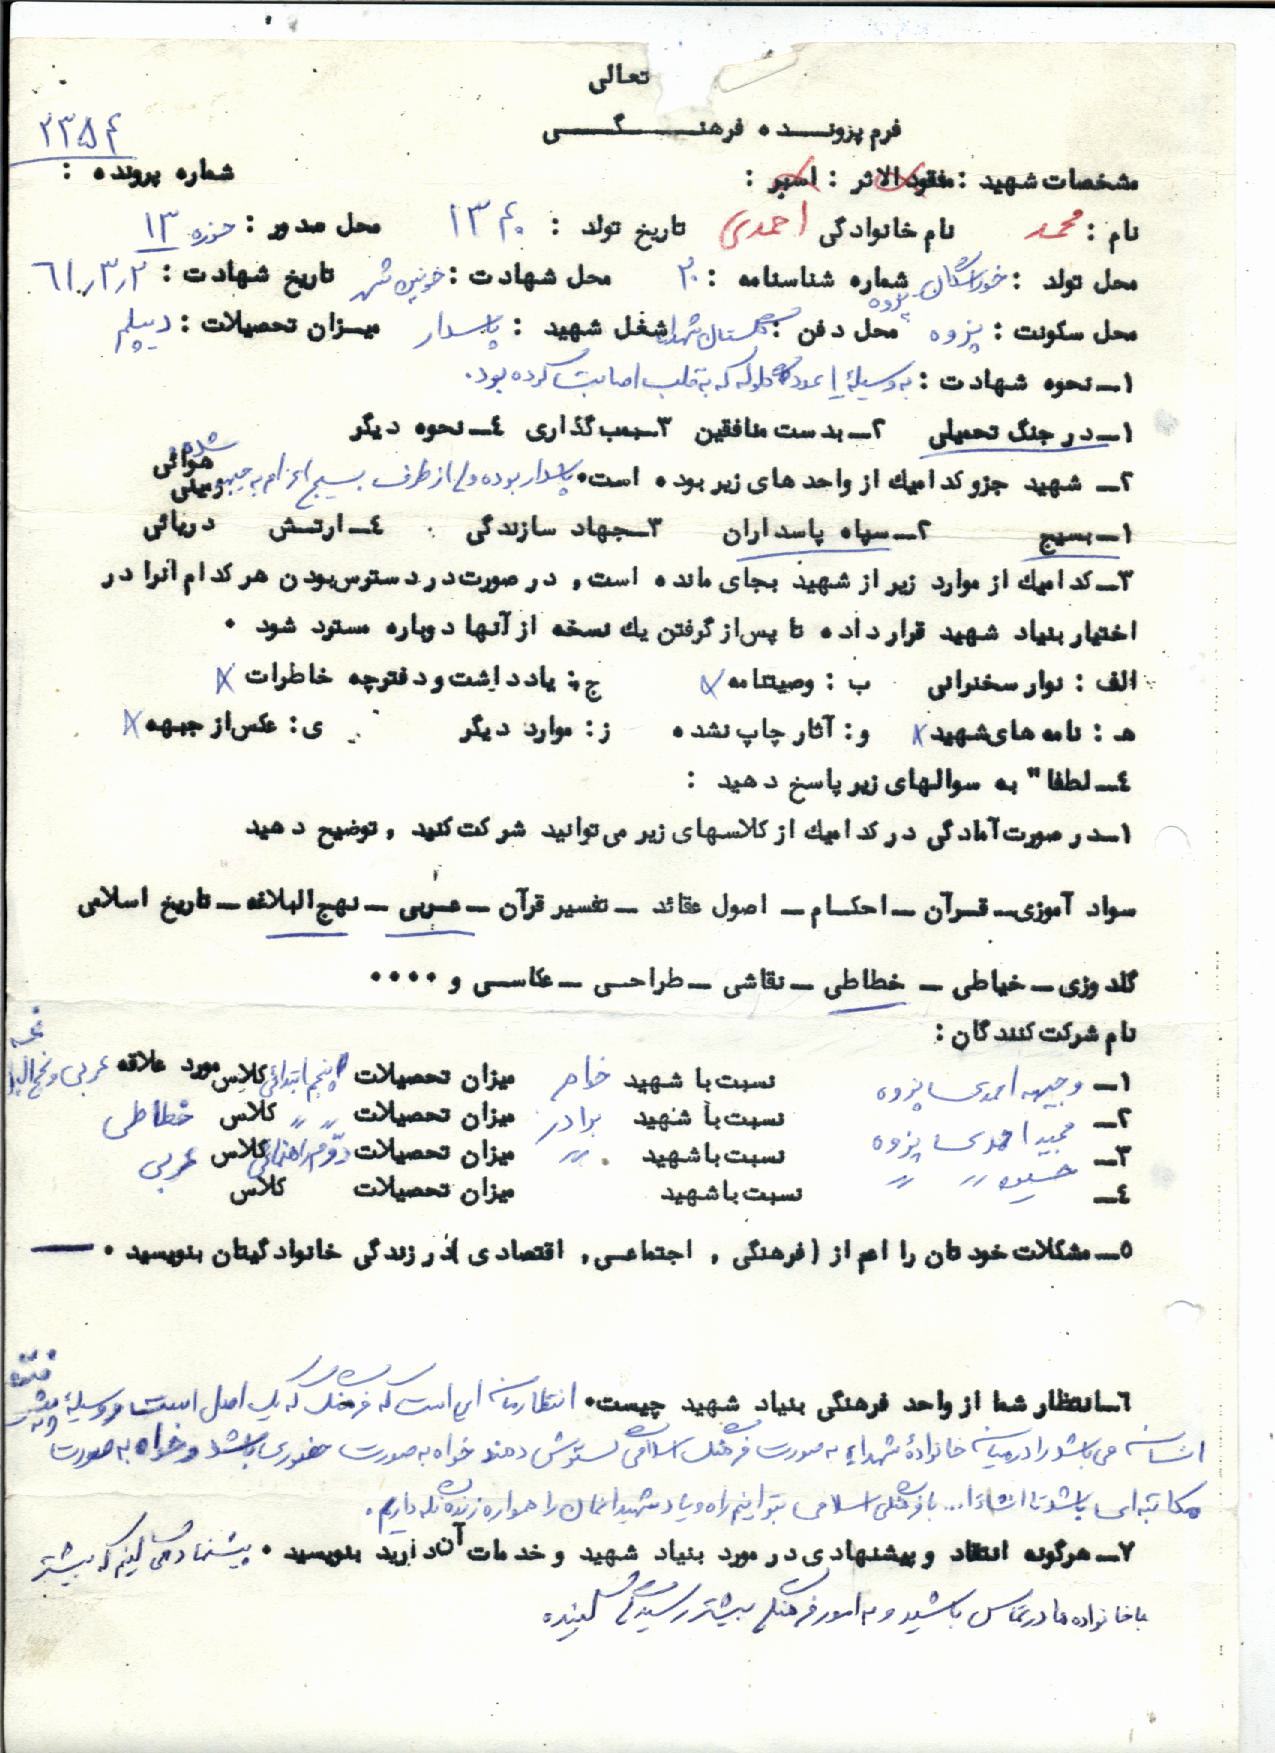 تعالی
فرم پرونده فرهنگی
۲۳۵۴
مشخصات شهید : مفقودالاثر : اسیر : شماره پرونده :
نام : محمد نام خانوادگی احمدی تاریخ تولد : ۱۳۴۰ محل صدور : حوزه ۱۳
محل تولد : خوراسگان شماره شناسنامه : ۲۰ محل شهادت : خونین شهر تاریخ شهادت : ۶۱٫۳٫۲
محل سکونت : پزوه محل دفن : گلستان شهدا پزوه شغل شهید : پاسدار میزان تحصیلات : دیپلم
۱ــ نحوه شهادت : به وسیلهٔ ۱ عدد گلوله که به قلب اصابت کرده بود.
۱ــ در جنگ تحمیلی ۲ــ بدست منافقین ۳ــ بمب گذاری ٤ــ نحوه دیگر
۲ــ شهید جزو کدامیك از واحد های زیر بوده است. پاسدار بوده ولی از طرف بسیج اعزام به جبهه شده
هوائی
زمینی
۱ــ بسیج ۲ــ سپاه پاسداران ۳ــ جهاد سازندگی ٤ــ ارتش دریائی
۳ــ کدامیك از موارد زیر از شهید بجای مانده است , در صورت در دسترس بودن هر کدام آنرا در
اختیار بنیاد شهید قرار داده تا پس از گرفتن یك نسخه از آنها دوباره مسترد شود .
الف : نوار سخنرانی ب : وصیتنامه x ج : یادداشت و دفترچه خاطرات x
هـ : نامه های شهید x و : آثار چاپ نشده ز : موارد دیگر ی : عکس از جبهه x
٤ــ لطفا" به سوالهای زیر پاسخ دهید :
۱ــ در صورت آمادگی در کدامیك از کلاسهای زیر می توانید شرکت کنید , توضیح دهید
سواد آموزی ــ قرآن ــ احکام ــ اصول عقائد ــ تفسیر قرآن ــ عربی ــ نهج البلاغه ــ تاریخ اسلامی
گلدوزی ــ خیاطی ــ خطاطی ــ نقاشی ــ طراحی ــ عکاسی و ....
نام شرکت کنندگان :
۱ــ وجیهه احمدی پزوه نسبت با شهید خواهر میزان تحصیلات پنجم ابتدائی کلاس مورد علاقه عربی و نهج البلاغه
۲ــ مجید احمدی پزوه نسبت با شهید برادر میزان تحصیلات 〃 〃 کلاس خطاطی
۳ــ حسین 〃 〃 نسبت با شهید 〃 میزان تحصیلات دوم راهنمائی کلاس عربی
٤ــ نسبت با شهید میزان تحصیلات کلاس
۵ــ مشکلات خودتان را اعم از (فرهنگی , اجتماعی , اقتصادی) در زندگی خانوادگیتان بنویسید . ــ
٦ــ انتظار شما از واحد فرهنگی بنیاد شهید چیست. انتظارمان این است که فرهنگ که یک اصل است و وسیلهٔ
انسان می باشد را در میان خانوادهٔ شهداء به صورت فرهنگ اسلامی گسترش دهند خواه به صورت حضوری باشد و خواه به صورت
مکاتبه ای باشد تا انشاءا... با فرهنگی اسلامی بتوانیم راه و یاد شهیدانمان را همواره زنده نگه داریم.
۷ــ هرگونه انتقاد و پیشنهادی در مورد بنیاد شهید و خدمات آن دارید بنویسید . پیشنهاد می کنیم که بیشتر
با خانواده ها در تماس باشید و به امور فرهنگی بیشتر رسیدگی کنید